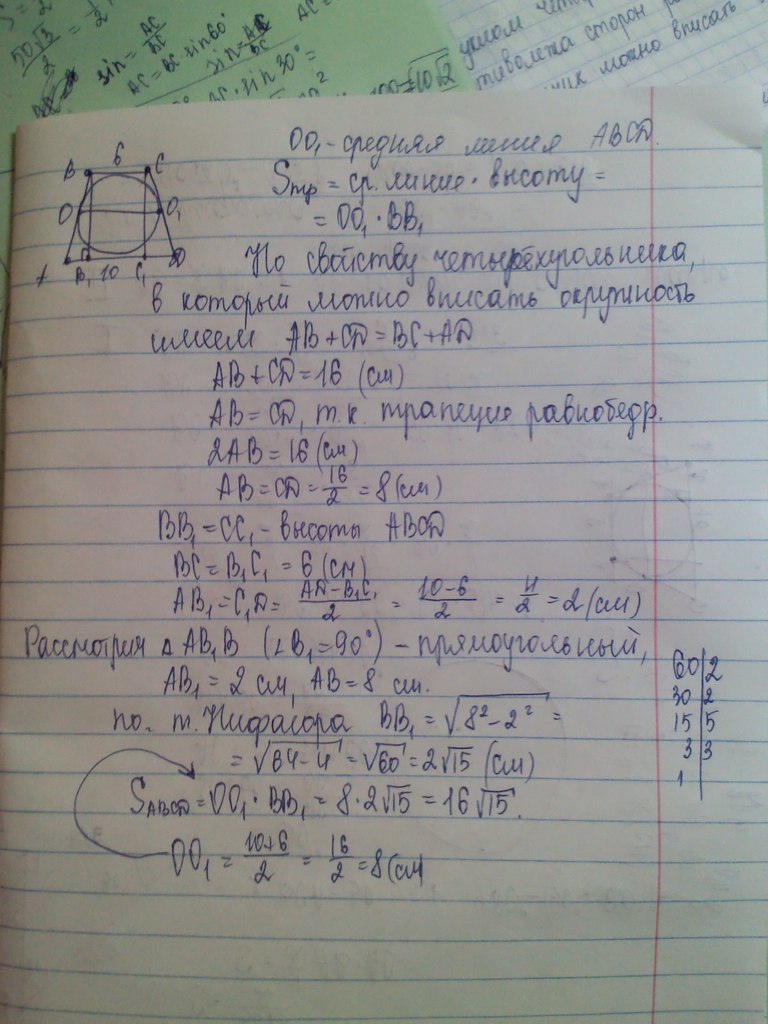 50√3
2
sin = AC
BC
AC = BC · sin60°
sin = AC
BC
AC · sin 30° =
100 = 10√2
углом
тиволежа сторон
можно вписать
OO₁ - средняя линия ABCD.
Sтр = ср. линие · высоту =
= OO₁ · BB₁
B 6 C
O O₁
A B₁ 10 C₁ D
По свойству четырёхугольника,
в который можно вписать окружность
имеем AB + CD = BC + AD
AB + CD = 16 (см)
AB = CD, т.к. трапеция равнобедр.
2AB = 16 (см)
AB = CD = 16/2 = 8 (см)
BB₁ = CC₁ - высоты ABCD
BC = B₁C₁ = 6 (см)
AB₁ = C₁D = AD - B₁C₁/2 = 10 - 6/2 = 4/2 = 2 (см)
Рассмотрим Δ AB₁B (∠B₁ = 90°) - прямоугольный,
AB₁ = 2 см, AB = 8 см.
по. т. Пифагора BB₁ = √8² - 2² =
= √64 - 4 = √60 = 2√15 (см)
SABCD = OO₁ · BB₁ = 8 · 2√15 = 16√15.
OO₁ = 10+6/2 = 16/2 = 8 (см
60 2
30 2
15 5
3 3
1